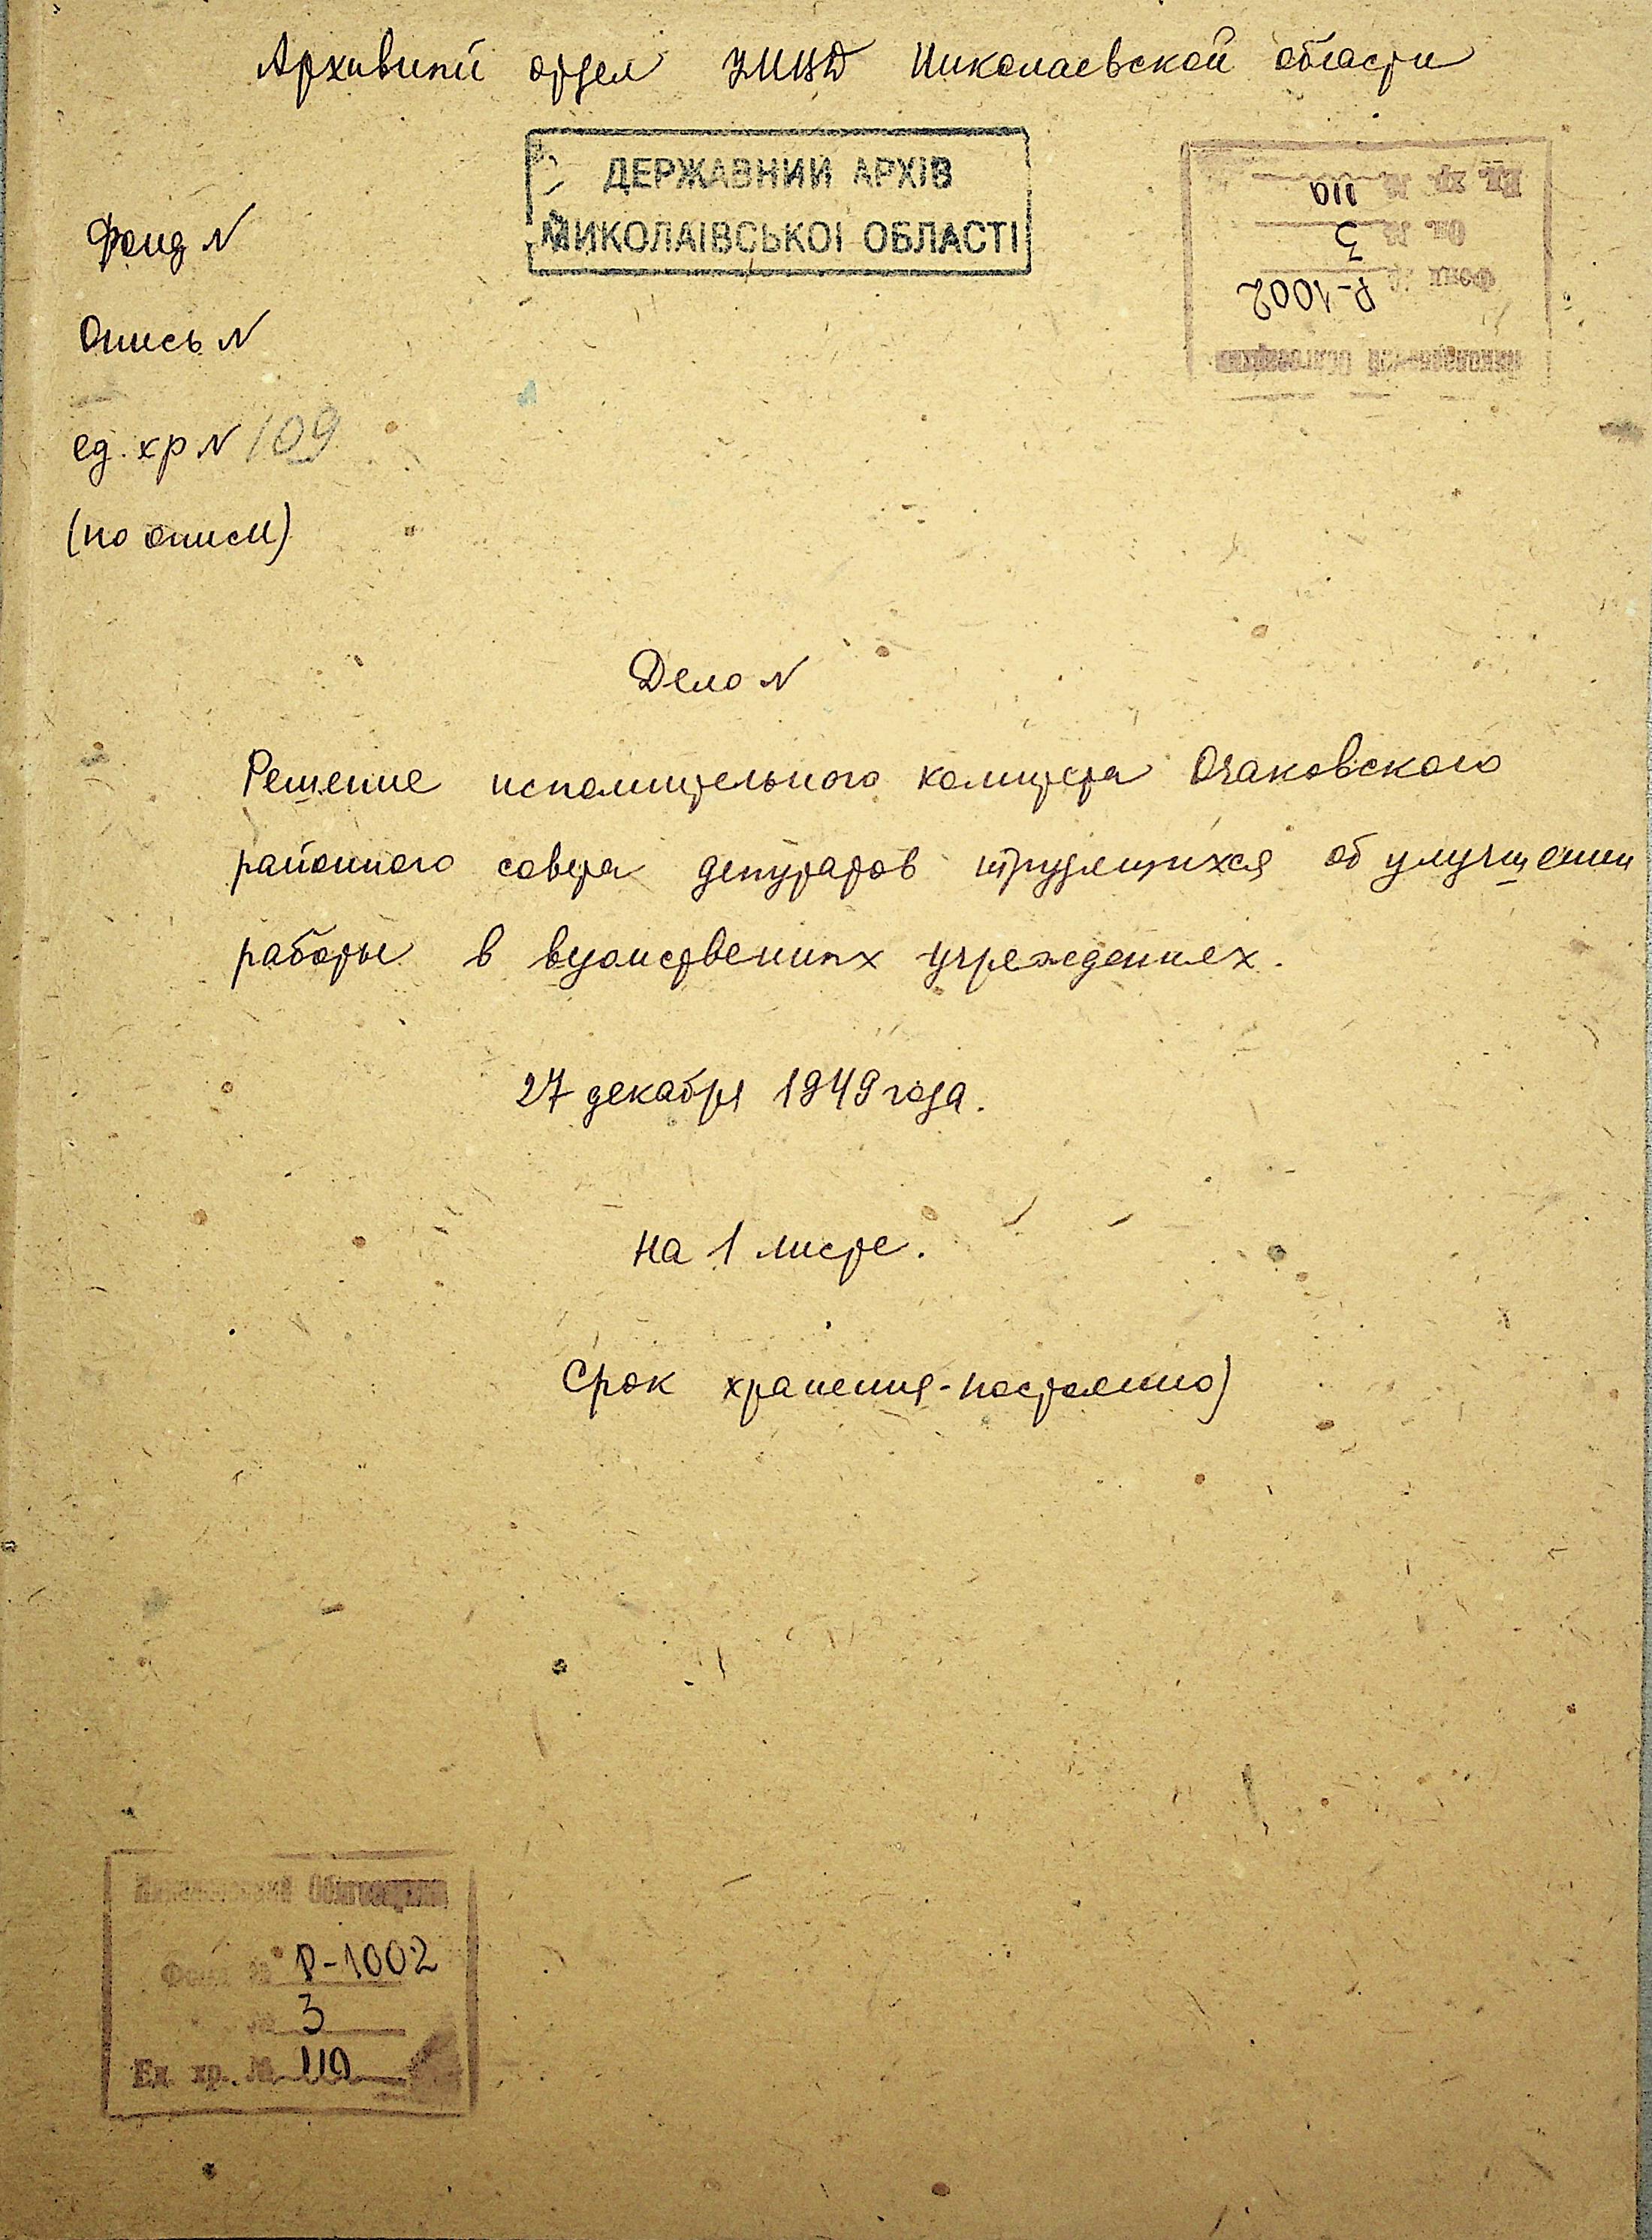 Архивный отдел УМВД Николаевской области
ДЕРЖАВНИЙ АРХІВ
МИКОЛАЇВСЬКОЇ ОБЛАСТІ
Ед. хр. № 110
Оп. № 3
Фонд № Р-1002
Николаевский Облгосархив
Фонд №
Опись №
ед. хр № 109
(по описи)
Дело №
Решение исполнительного комитета Очаковского
районного совета депутатов трудящихся об улучшении
работы в учреждениях.
27 декабря 1949 года.
на 1 листе.
Срок хранения - постоянно)
Николаевский Облгосархив
Фонд № Р-1002
№ 3
Ед. хр. № 110